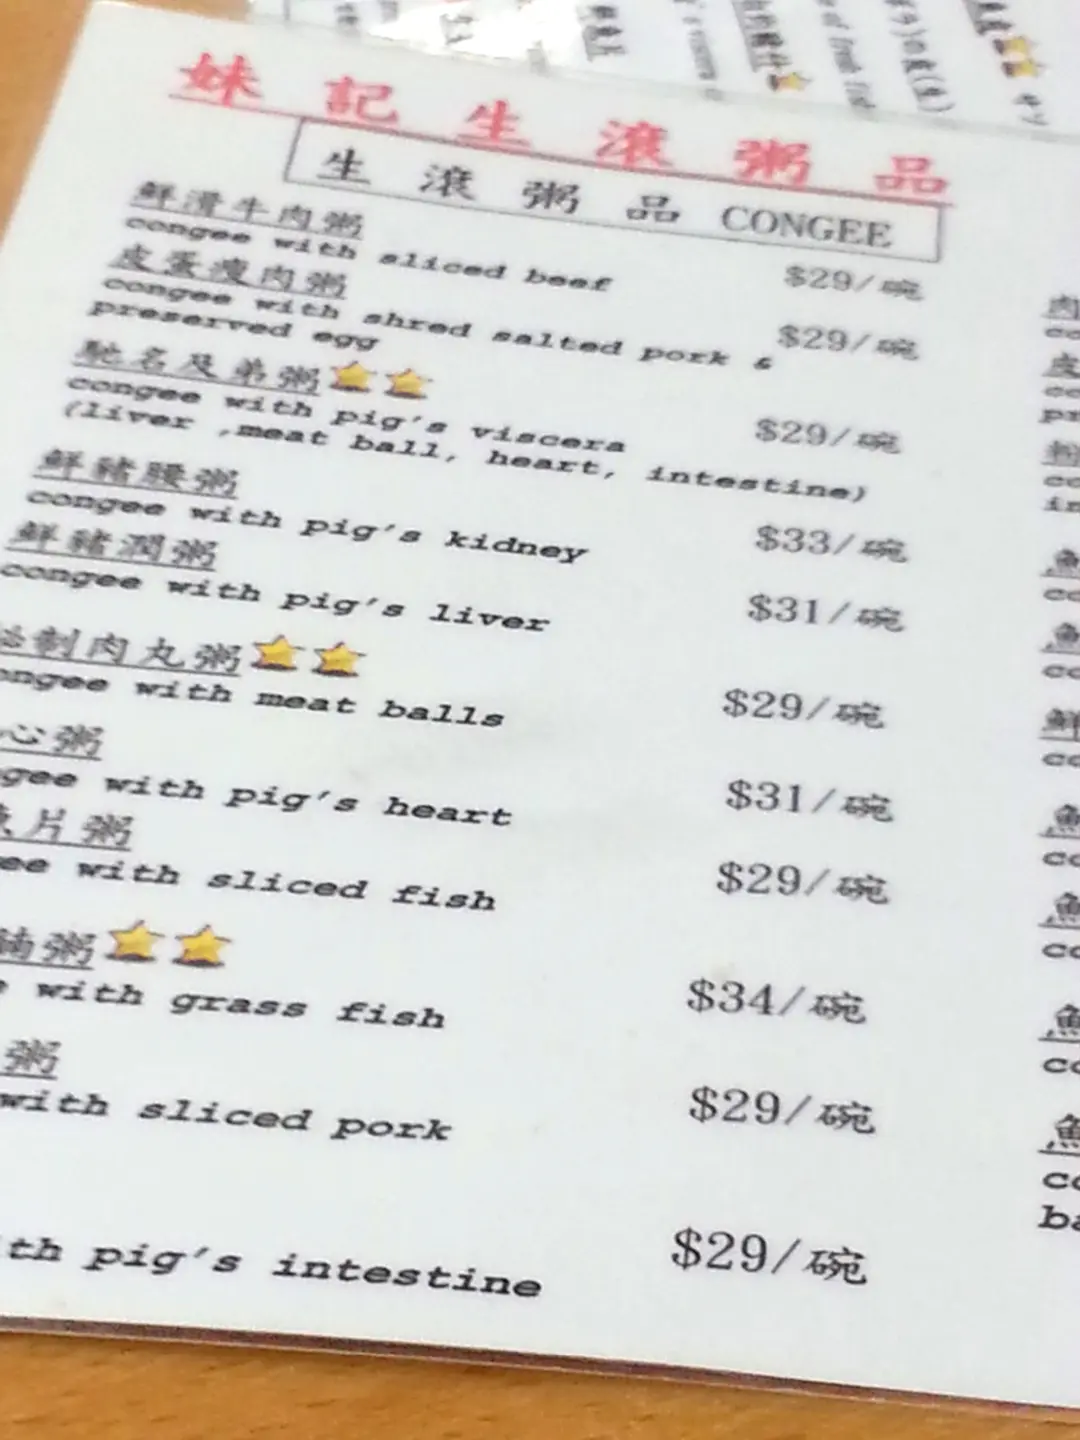 妹記生滾粥品
生滾粥品 CONGEE
鮮滑牛肉粥
congee with sliced beef $29/碗
皮蛋瘦肉粥
congee with shred salted pork & $29/碗
preserved egg
馳名及弟粥
congee with pig's viscera $29/碗
(liver ,meat ball, heart, intestine)
鮮豬腰粥
congee with pig's kidney $33/碗
鮮豬潤粥
congee with pig's liver $31/碗
制肉丸粥
ongee with meat balls $29/碗
心粥
gee with pig's heart $31/碗
片粥
ee with sliced fish $29/碗
腩粥
with grass fish $34/碗
粥
with sliced pork $29/碗
th pig's intestine $29/碗